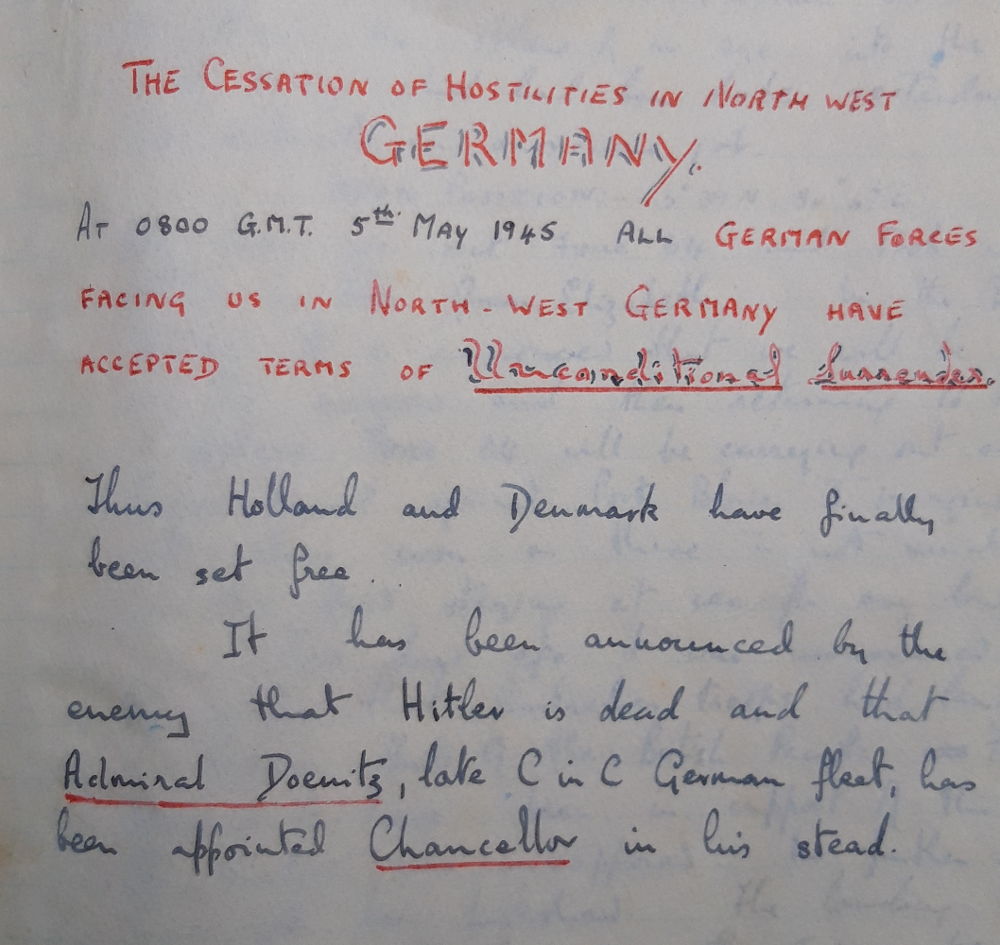 THE CESSATION OF HOSTILITIES IN NORTH WEST
GERMANY.
AT 0800 G.M.T. 5th May 1945 ALL GERMAN FORCES
FACING US IN NORTH-WEST GERMANY HAVE
ACCEPTED TERMS OF Unconditional Surrender.
Thus Holland and Denmark have finally
been set free.
It has been announced by the
enemy that Hitler is dead and that
Admiral Doenitz, late C in C German fleet, has
been appointed Chancellor in his stead.